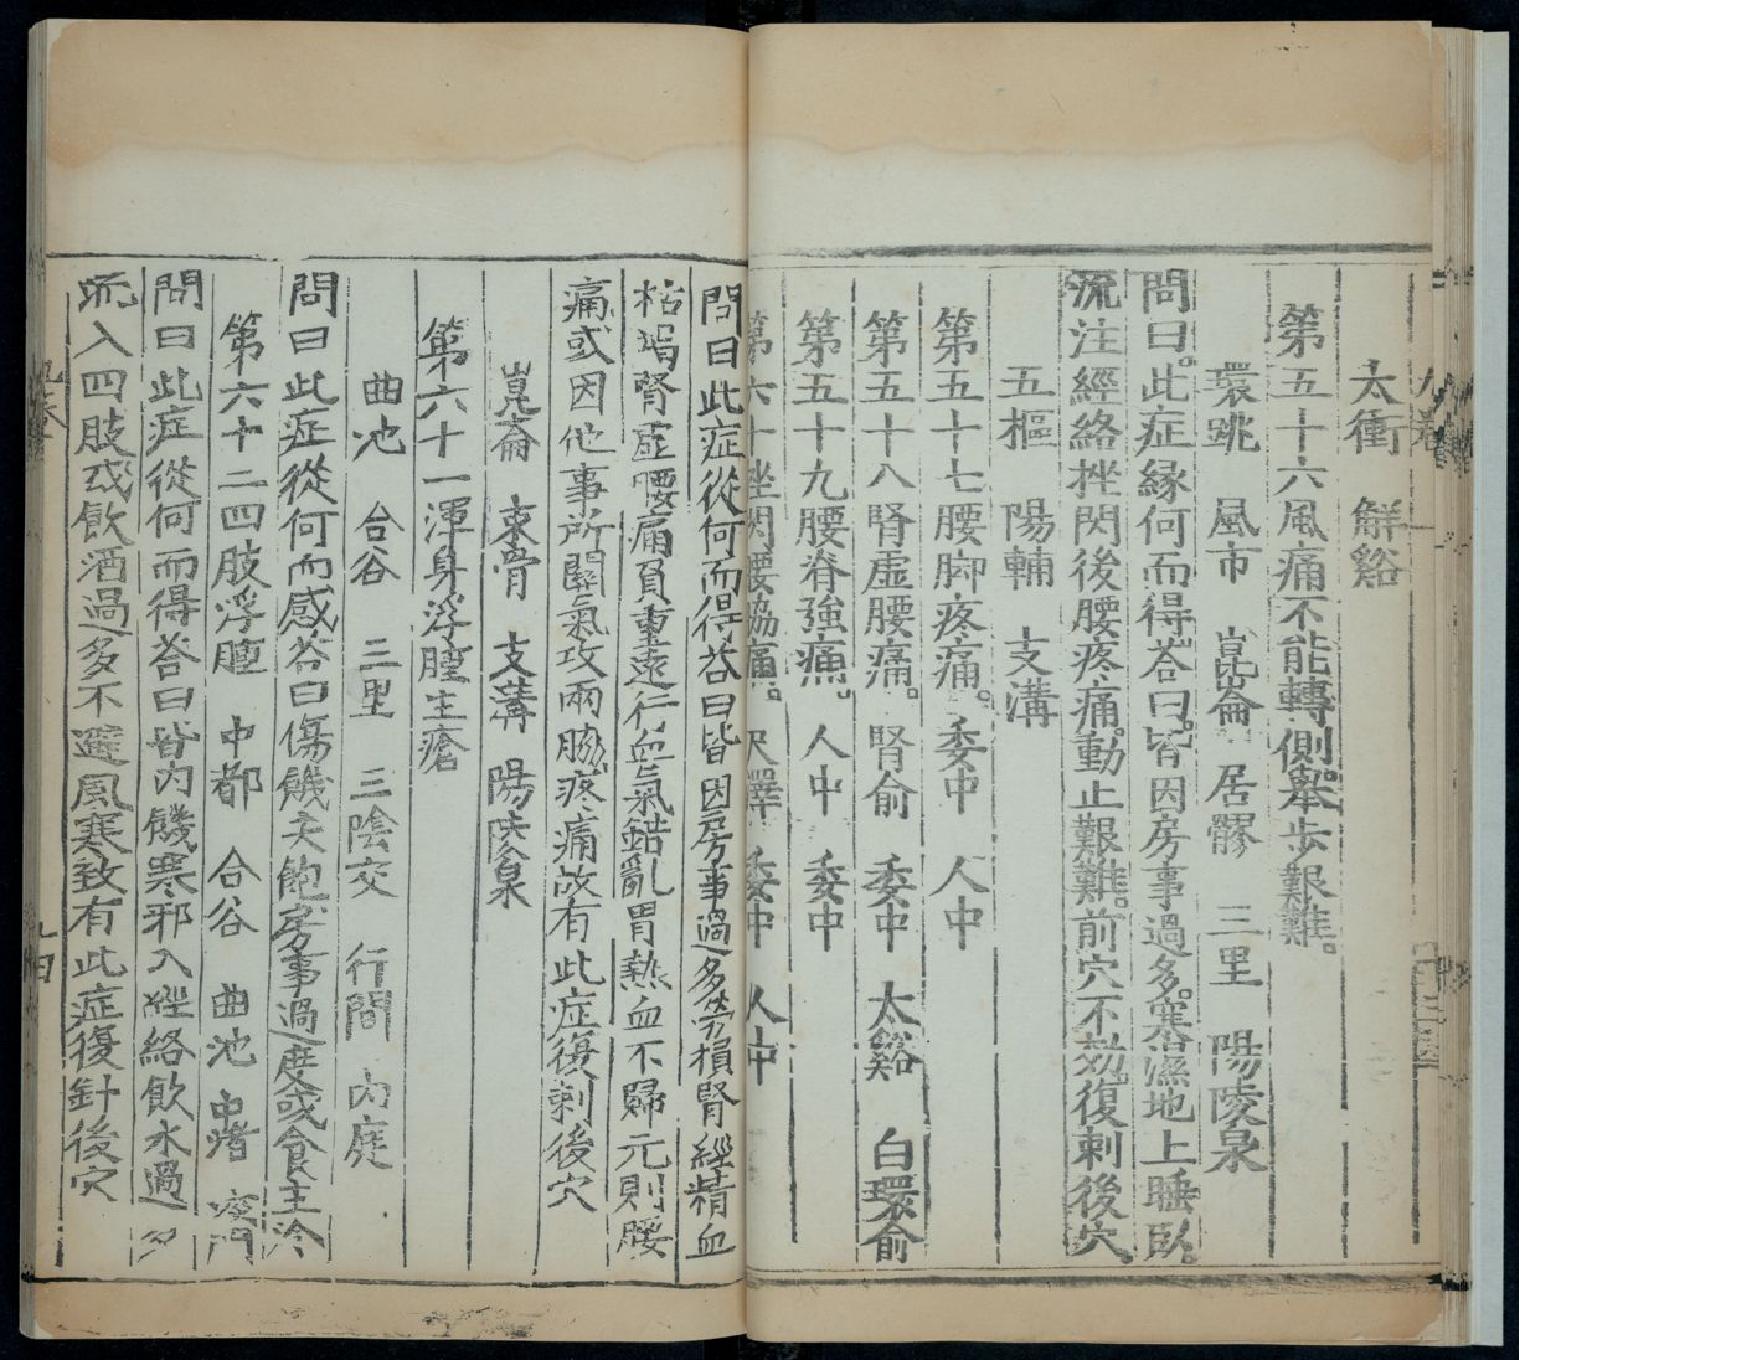 太衝　解谿
第五十六風痛不能轉側舉步艱難。
環跳　風市　崑崙　居髎　三里　陽陵泉
問曰。此症縁何而得答曰。皆因房事過多。寒濕地上睡臥。
流注經絡挫閃後腰疼痛。動止艱難。前穴不効。復刺後穴。
五樞　陽輔　支溝
第五十七腰脚疼痛。委中　人中
第五十八腎虛腰痛。腎俞　委中　太谿　白環俞
第五十九腰脊強痛。人中　委中
第六十挫閃腰脇痛。尺澤　委中　人中
問曰此症從何而得荅曰皆因房事過多勞損腎經精血
枯竭腎虛腰痛負重遠行血氣錯亂冒熱血不歸元則腰
痛或因他事所關氣攻兩脇疼痛故有此症復刺後穴
崑崙　束骨　支溝　陽陵泉
第六十一渾身浮腫生瘡
曲池　合谷　三里　三陰交　行間　內庭
問曰此症從何而感荅曰傷饑失飽房事過度或食生冷
第六十二四肢浮腫　中都　合谷　曲池　中渚　液門
問曰此症從何而得荅曰皆因饑寒邪入經絡飲水過多
流入四肢或飲酒過多不避風寒致有此症復針後穴